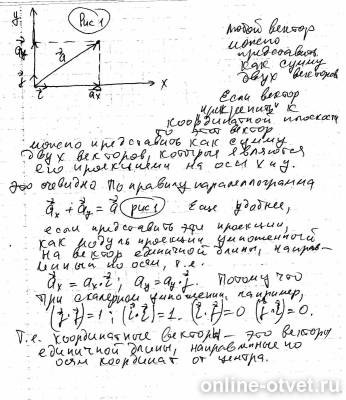 y
Рис 1
a⃗y
a⃗
j⃗
i⃗
a⃗x
x
Любой вектор
можно
представить
как сумму
двух векторов
Если вектор
"прикрепить" к
координатной плоскости
то этот вектор
можно представить как сумму
двух векторов, которые являются
его проекциями на осы x и y.
это очевидно по правилу параллелограмма
a⃗x + a⃗y = a⃗ рис 1 Еще удобнее,
если представить эти проекции,
как модуль проекции умноженной
на вектор единичной длины, направ-
ленный по оси, т.е.
a⃗x = ax·i⃗; a⃗y = ay·j⃗. Потому что
при скалярном умножении, например,
(j⃗·j⃗)=1; (i⃗·i⃗)=1. (j⃗·i⃗)=0 (i⃗·j⃗)=0.
Т.е. координатные векторы - это вектора
единичной длины, направленные по
осям координат от центра.
online-otvet.ru